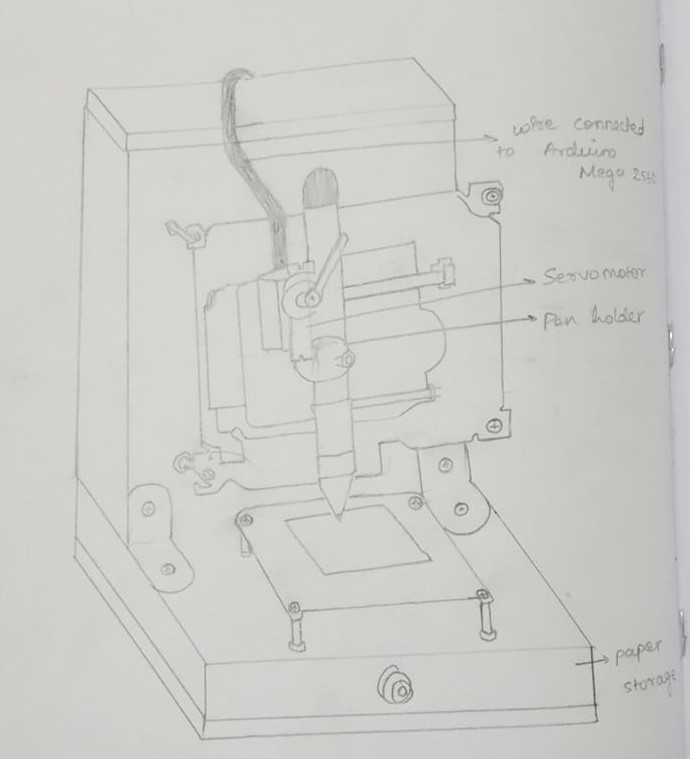 wire connected
to Arduino
Mega 2560
Servomotor
Pen holder
paper
storage